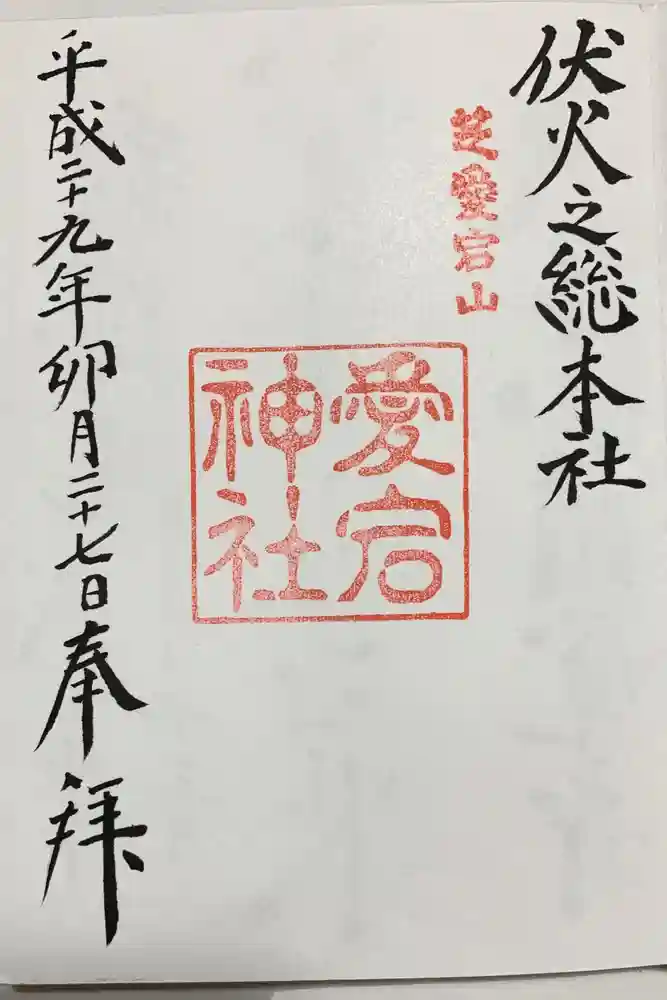 伏火之總本社
芝愛宕山
愛宕
神社
平成二十九年卯月二十七日奉拝